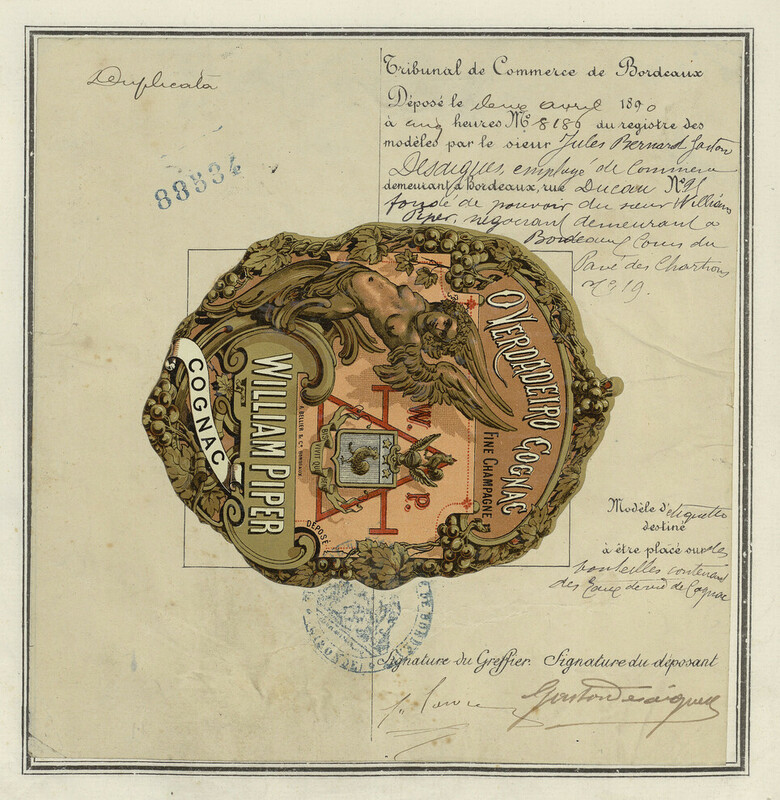 Duplicata
88834
Tribunal de Commerce de Bordeaux
Déposé le deux avril 1890
à cinq heures No 8186 du registre des
modèles par le sieur Jules Bernard Gaston
Desaigues, employé de Commerce
demeurant à Bordeaux, rue Ducau No 95
fondé de pouvoir du sieur William
Piper, négociant demeurant à
Bordeaux Cours du
Pavé des Chartrons
No 19.
O VERDADEIRO COGNAC
FINE CHAMPAGNE
W. P.
WILLIAM PIPER
COGNAC
DÉPOSÉ
Modèle d'étiquette
destiné
à être placé sur des
bouteilles contenant
des Eaux de vie de Cognac
Signature du Greffier. Signature du déposant
Gaston Desaigues